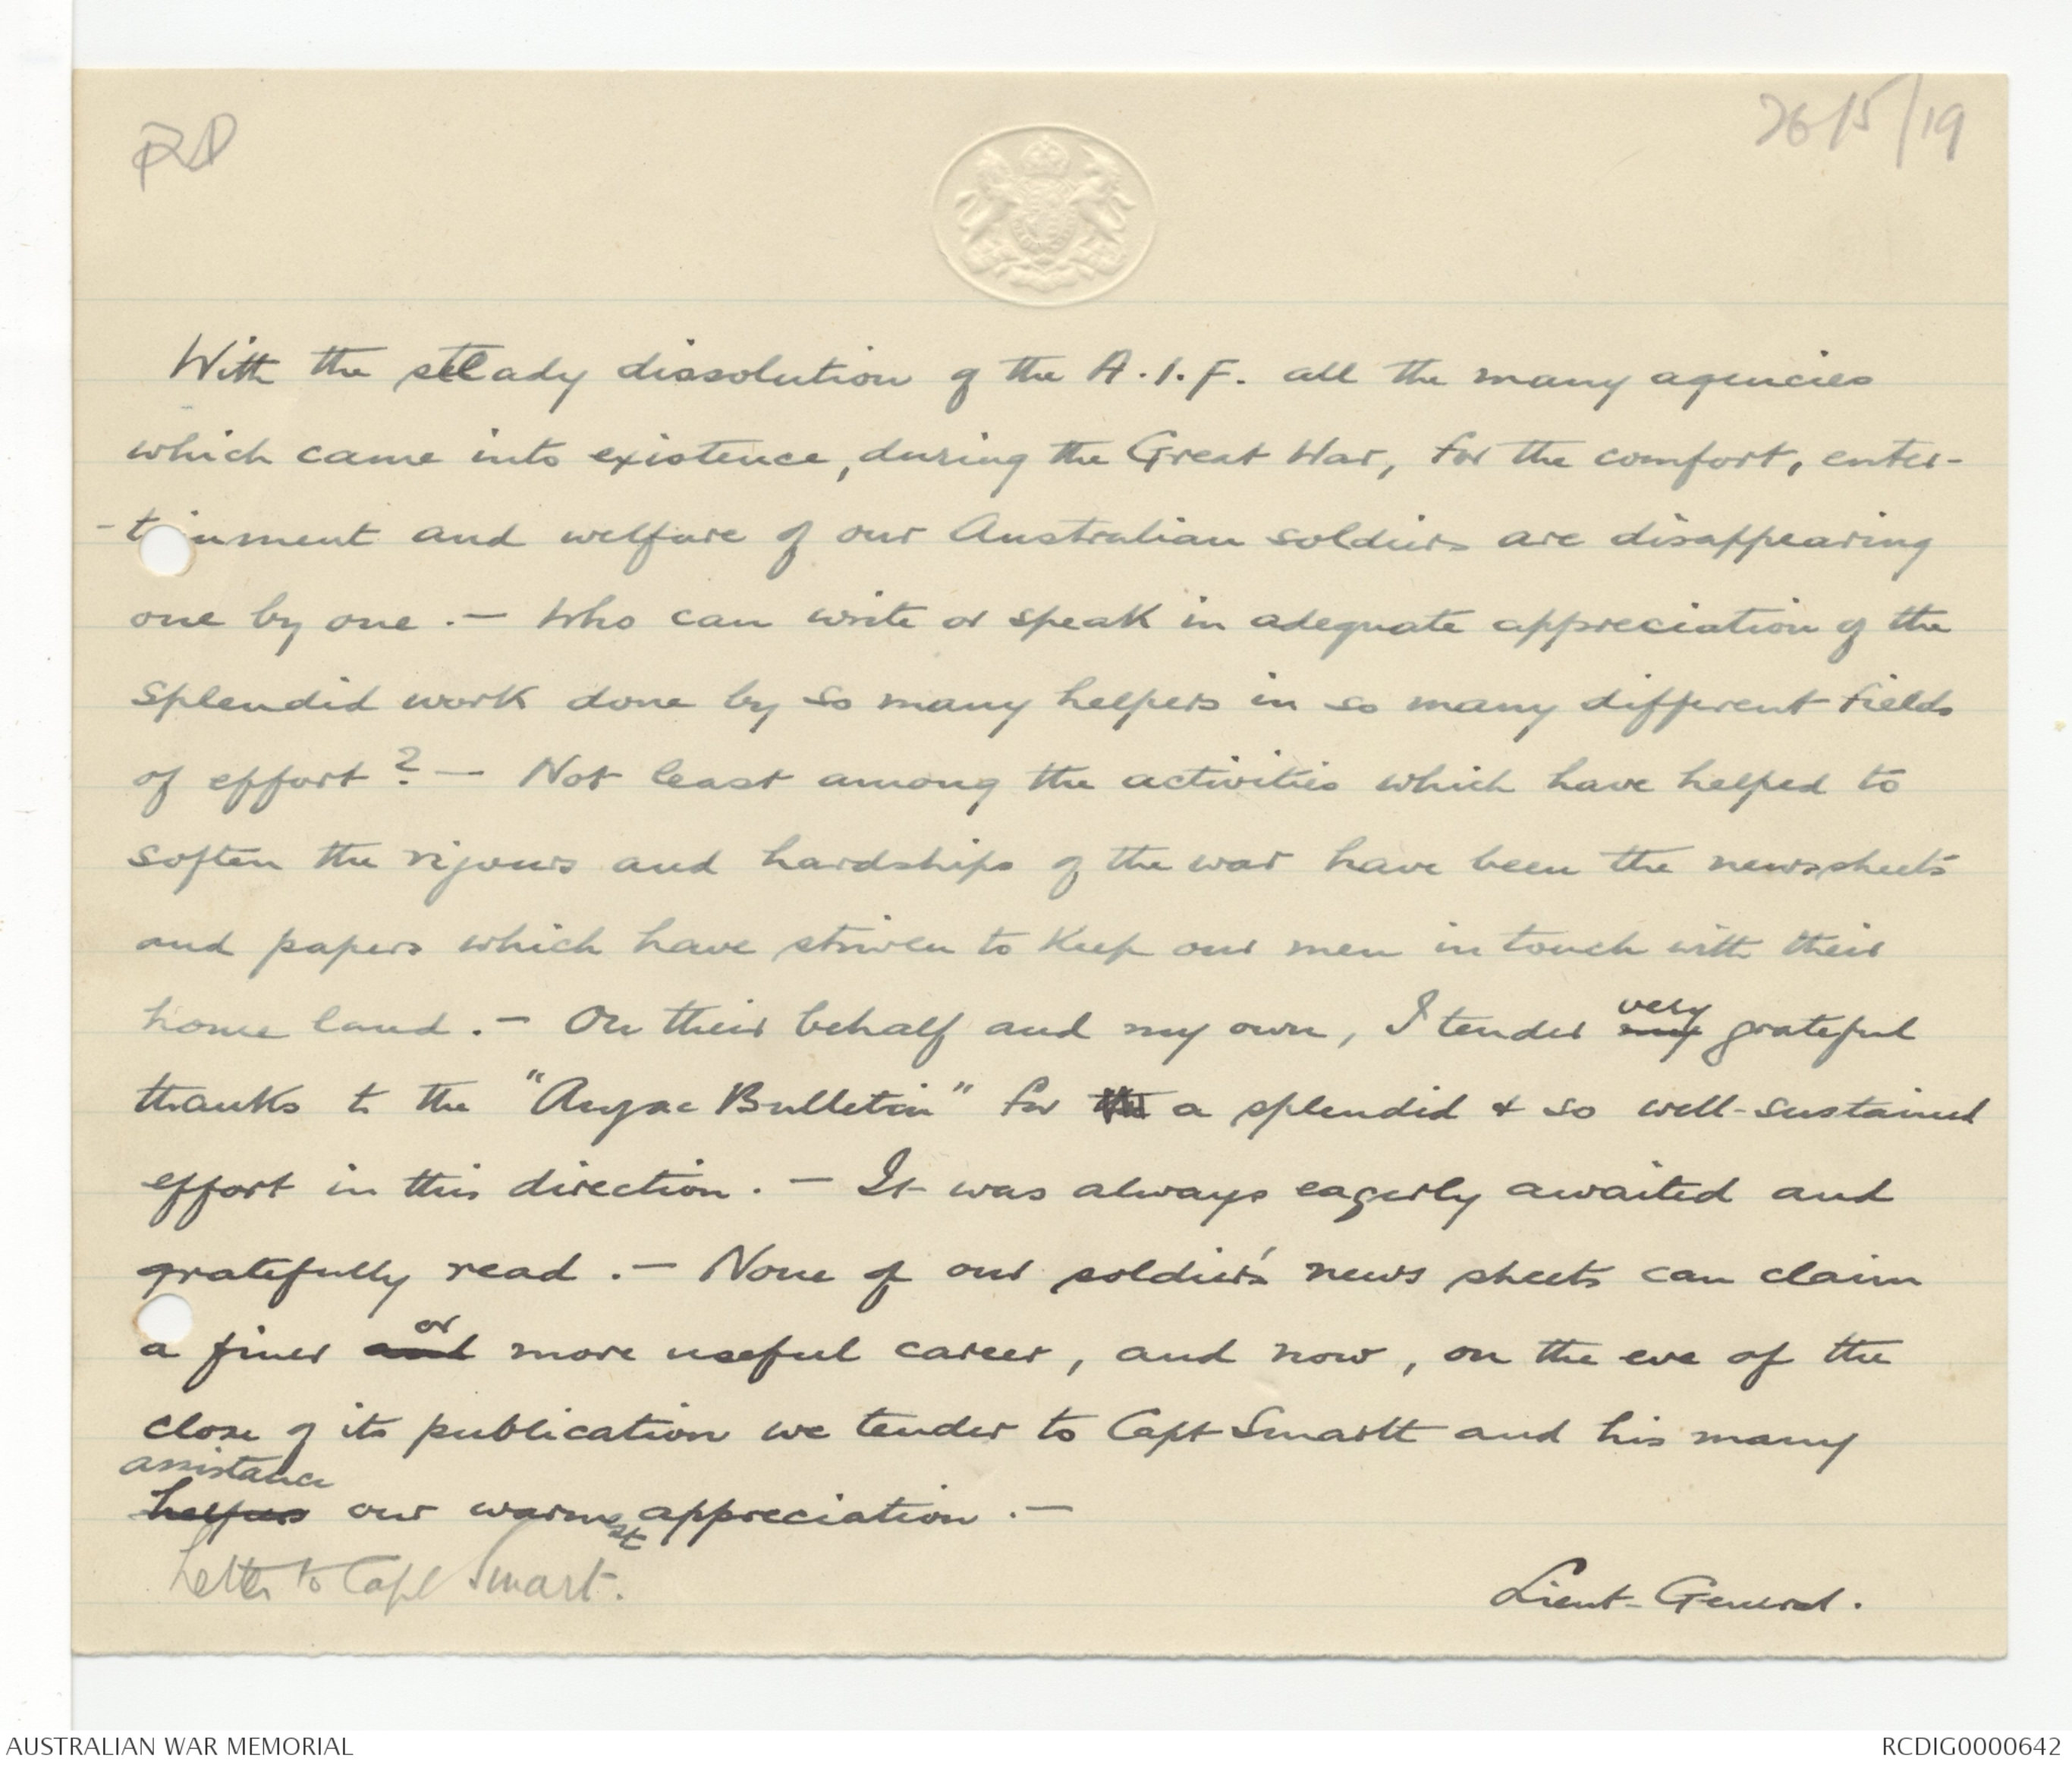 26/5/19
With the steady dissolution of the A.I.F. all the many agencies
which came into existence, during the Great War, for the comfort, enter-
-t inment and welfare of our Australian soldiers are disappearing
one by one. - Who can write or speak in adequate appreciation of the
splendid work done by so many helpers in so many different fields
of effort? - Not least among the activities which have helped to
soften the rigours and hardships of the war have been the newssheets
and papers which have striven to keep our men in touch with their
home land. - On their behalf and my own, I tender very my grateful
thanks to the "Anzac Bulletin" for a splendid & so well-sustained
effort in this direction. - It was always eagerly awaited and
gratefully read. - None of our soldier's news sheets can claim
a finer and or more useful career, and now, on the eve of the
close of its publication we tender to Capt Smartt and his many
assistance
helpers our warmest appreciation. -
Letter to Capt Smart.
Lieut-General.
AUSTRALIAN WAR MEMORIAL
RCDIG0000642